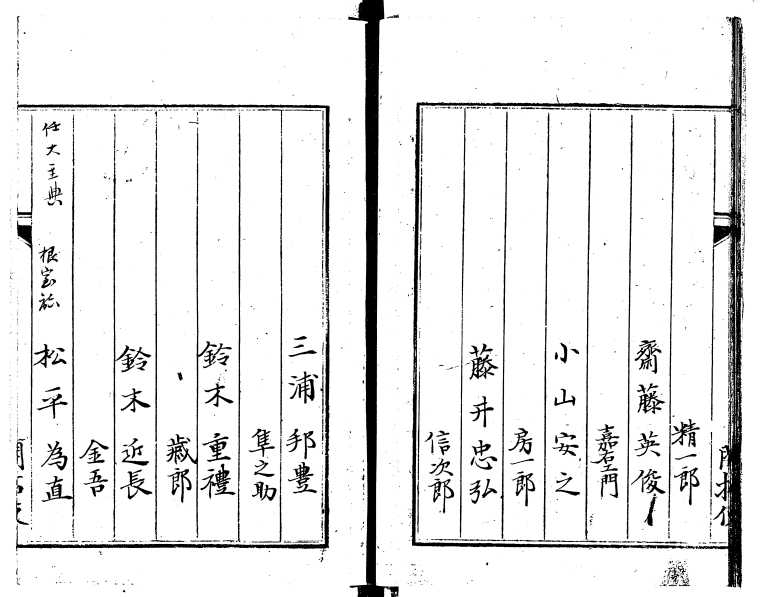 精一郎
齋藤英俊
嘉右衛門
小山安之
房一郎
藤井忠弘
信次郎
三浦邦豊
隼之助
鈴木重禮
蔵郎
鈴木近長
金吾
任大主典
松平為直